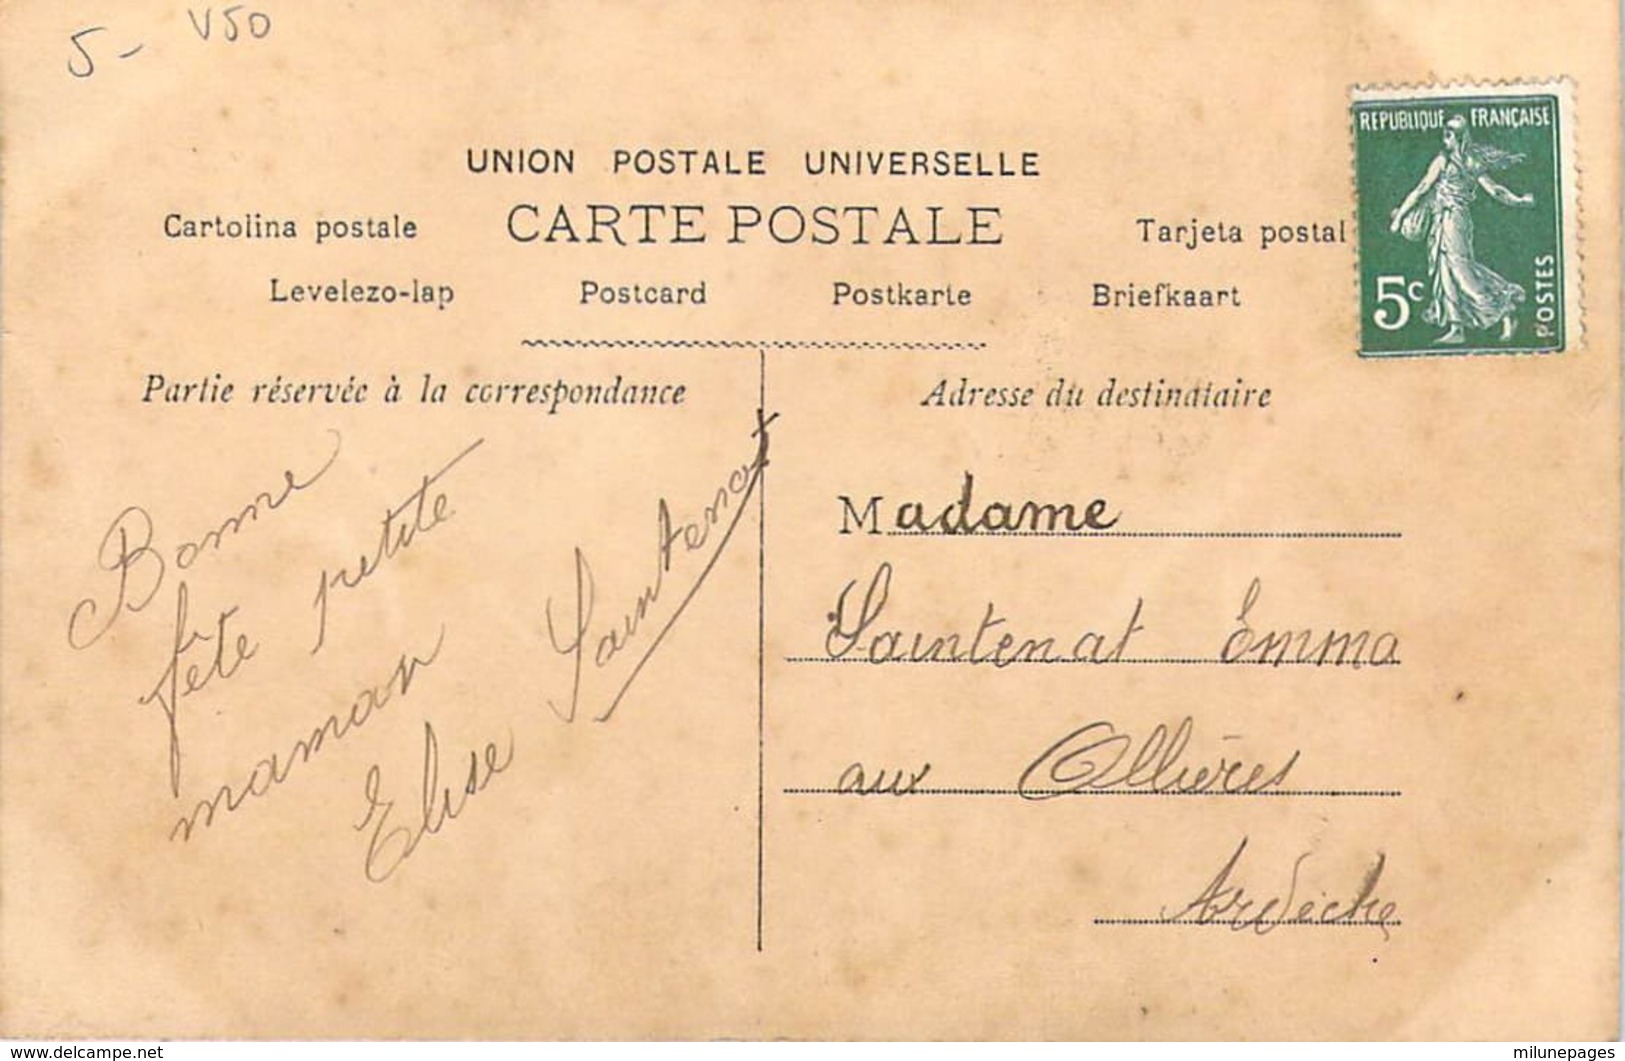 5- V50
REPUBLIQUE FRANÇAISE
5c
POSTES
UNION POSTALE UNIVERSELLE
Cartolina postale CARTE POSTALE Tarjeta postal
Levelezo-lap Postcard Postkarte Briefkaart
Partie réservée à la correspondance
Bonne
fête petite
maman
Elise Saintenat
Adresse du destinataire
Madame
Saintenat Emma
aux Ollières
Ardèche
www.delcampe.net
milunepages